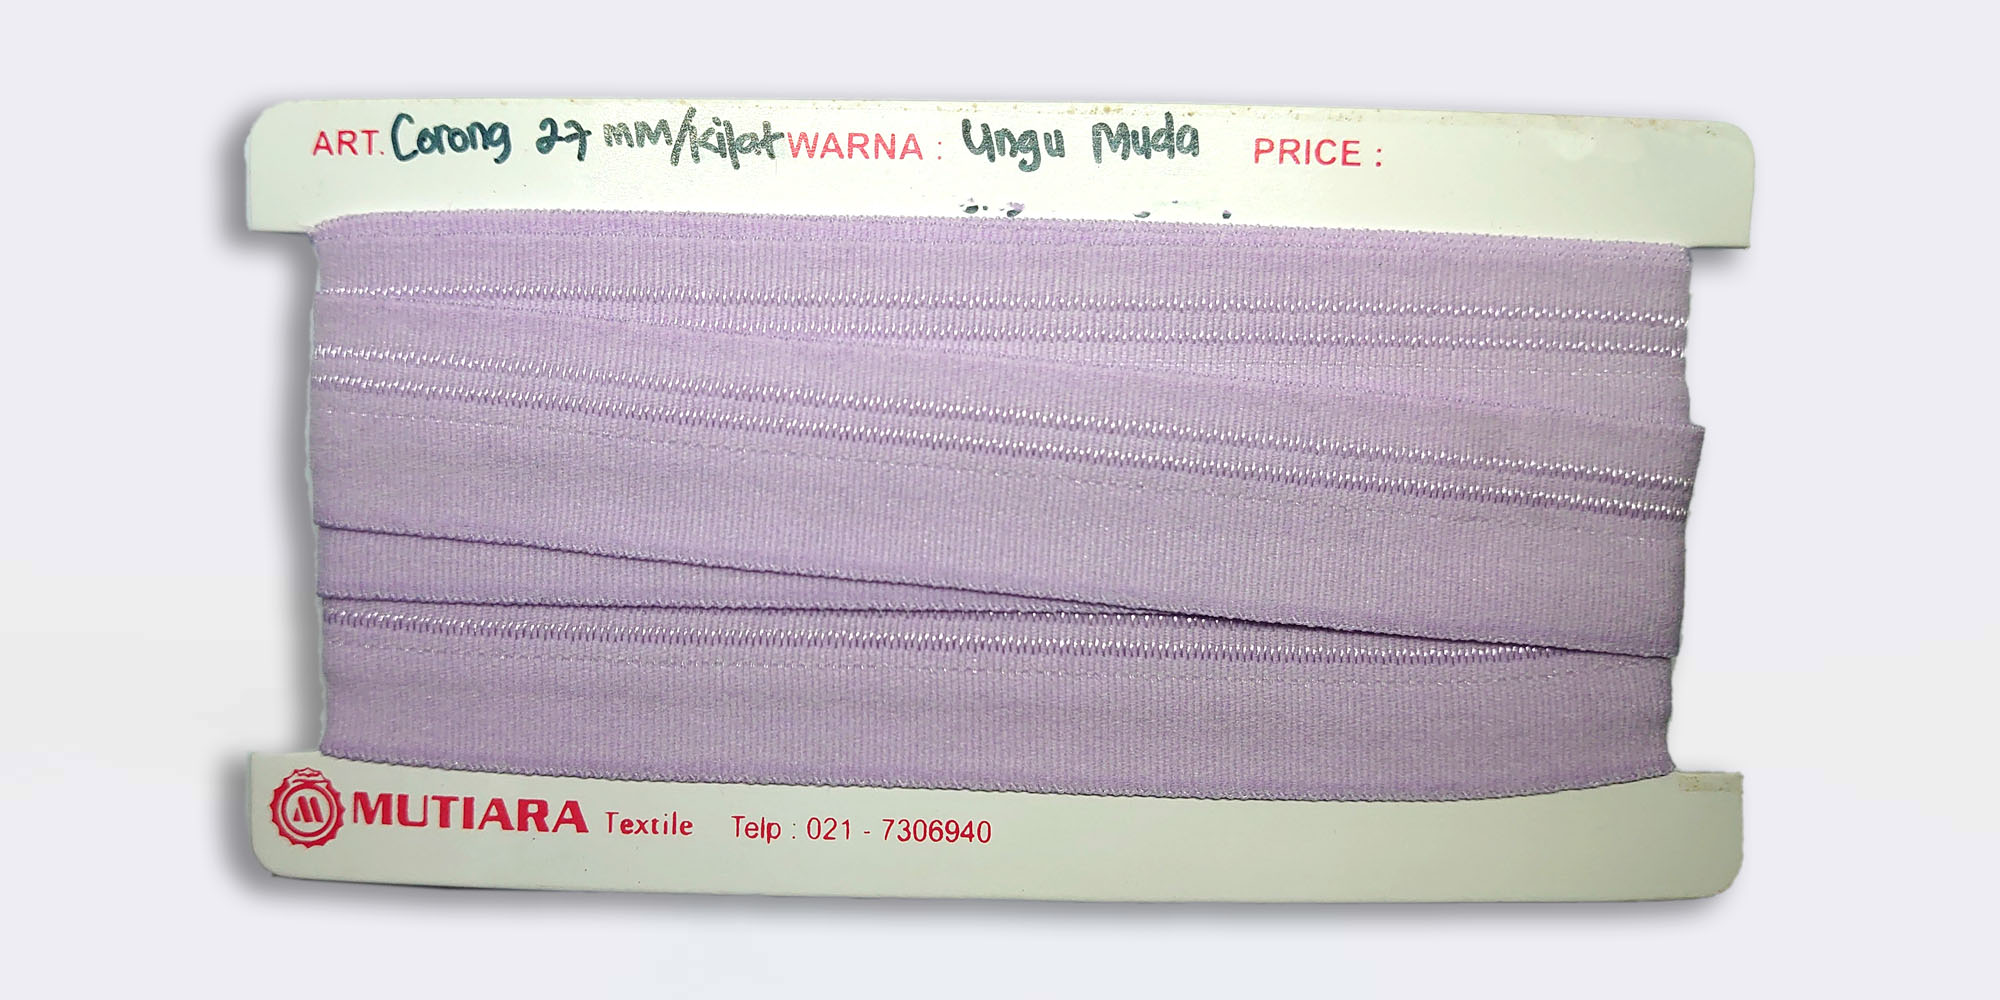 ART. Corong 27 mm/kilat WARNA : Ungu Muda PRICE :
MUTIARA Textile Telp : 021 - 7306940